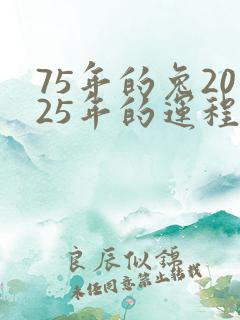 75年的兔20
25年的运程
良辰似锦
未经同意禁止转载